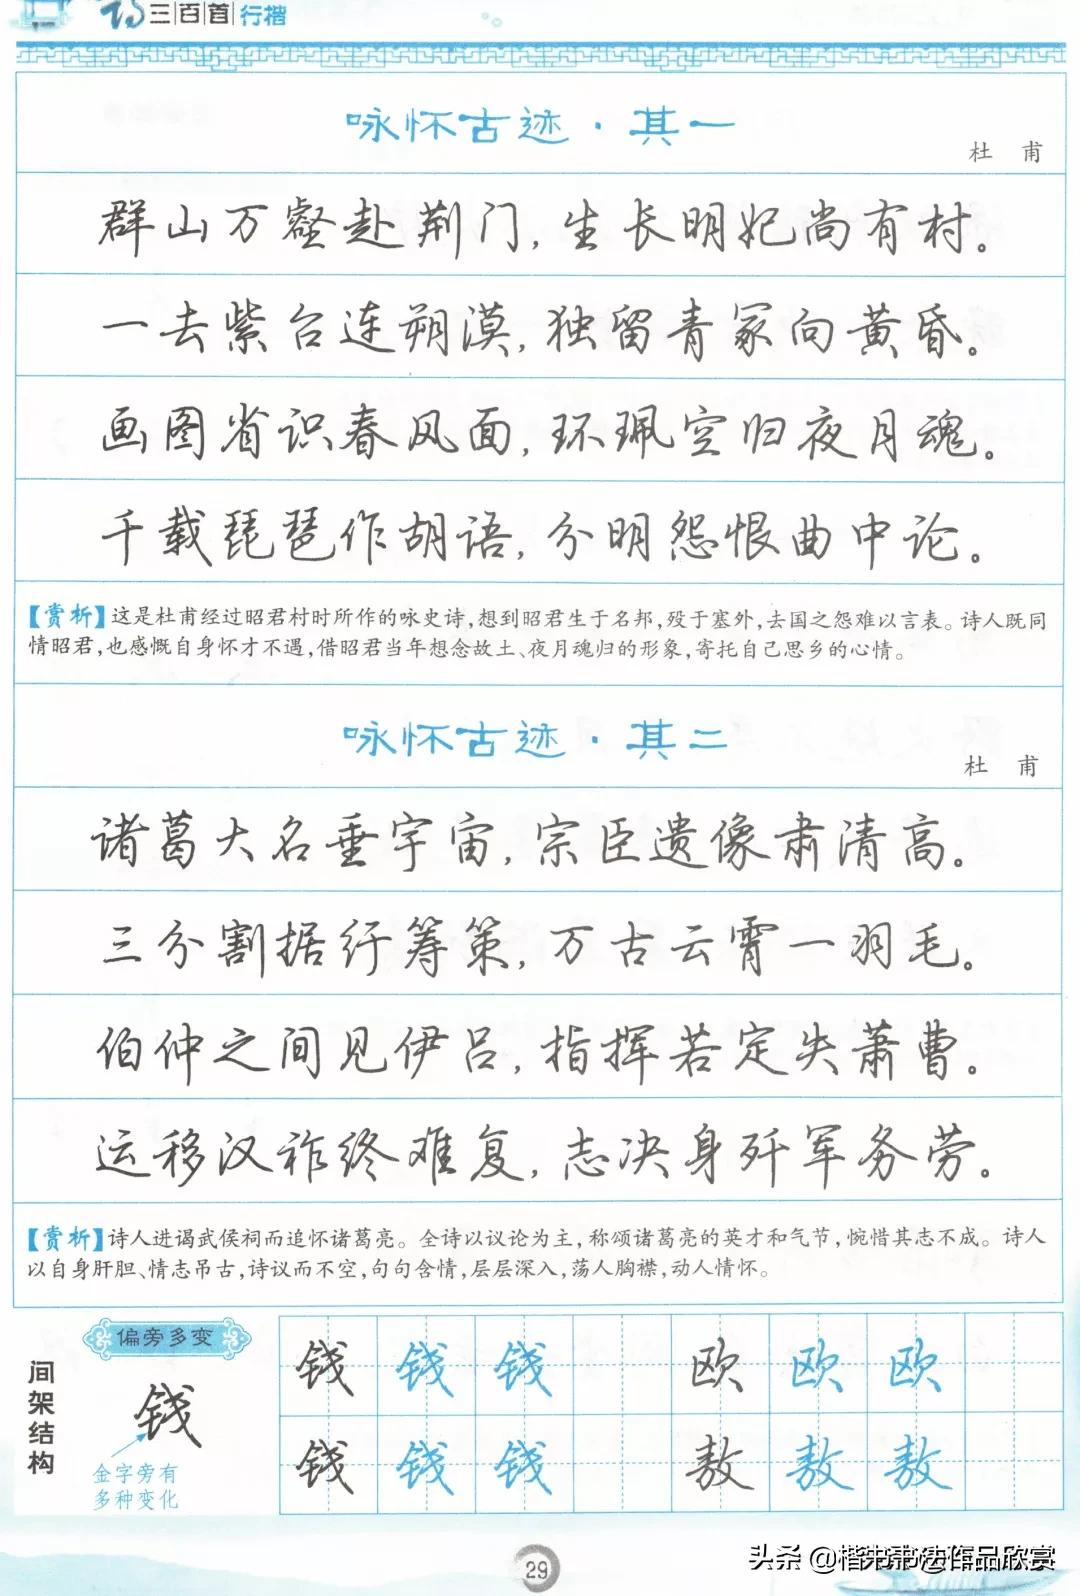 诗三百首 行楷
咏怀古迹·其一
杜 甫
群山万壑赴荆门,生长明妃尚有村。
一去紫台连朔漠,独留青冢向黄昏。
画图省识春风面,环珮空归夜月魂。
千载琵琶作胡语,分明怨恨曲中论。
【赏析】这是杜甫经过昭君村时所作的咏史诗,想到昭君生于名邦,殁于塞外,去国之怨难以言表。诗人既同
情昭君,也感慨自身怀才不遇,借昭君当年想念故土、夜月魂归的形象,寄托自己思乡的心情。
咏怀古迹·其二
杜 甫
诸葛大名垂宇宙,宗臣遗像肃清高。
三分割据纡筹策,万古云霄一羽毛。
伯仲之间见伊吕,指挥若定失萧曹。
运移汉祚终难复,志决身歼军务劳。
【赏析】诗人进谒武侯祠而追怀诸葛亮。全诗以议论为主,称颂诸葛亮的英才和气节,惋惜其志不成。诗人
以自身肝胆、情志吊古,诗议而不空,句句含情,层层深入,荡人胸襟,动人情怀。
间架结构
偏旁多变
钱
金字旁有
多种变化
钱 钱 钱 欧 欧 欧
钱 钱 钱 敖 敖 敖
29
头条 @楷书书法作品欣赏